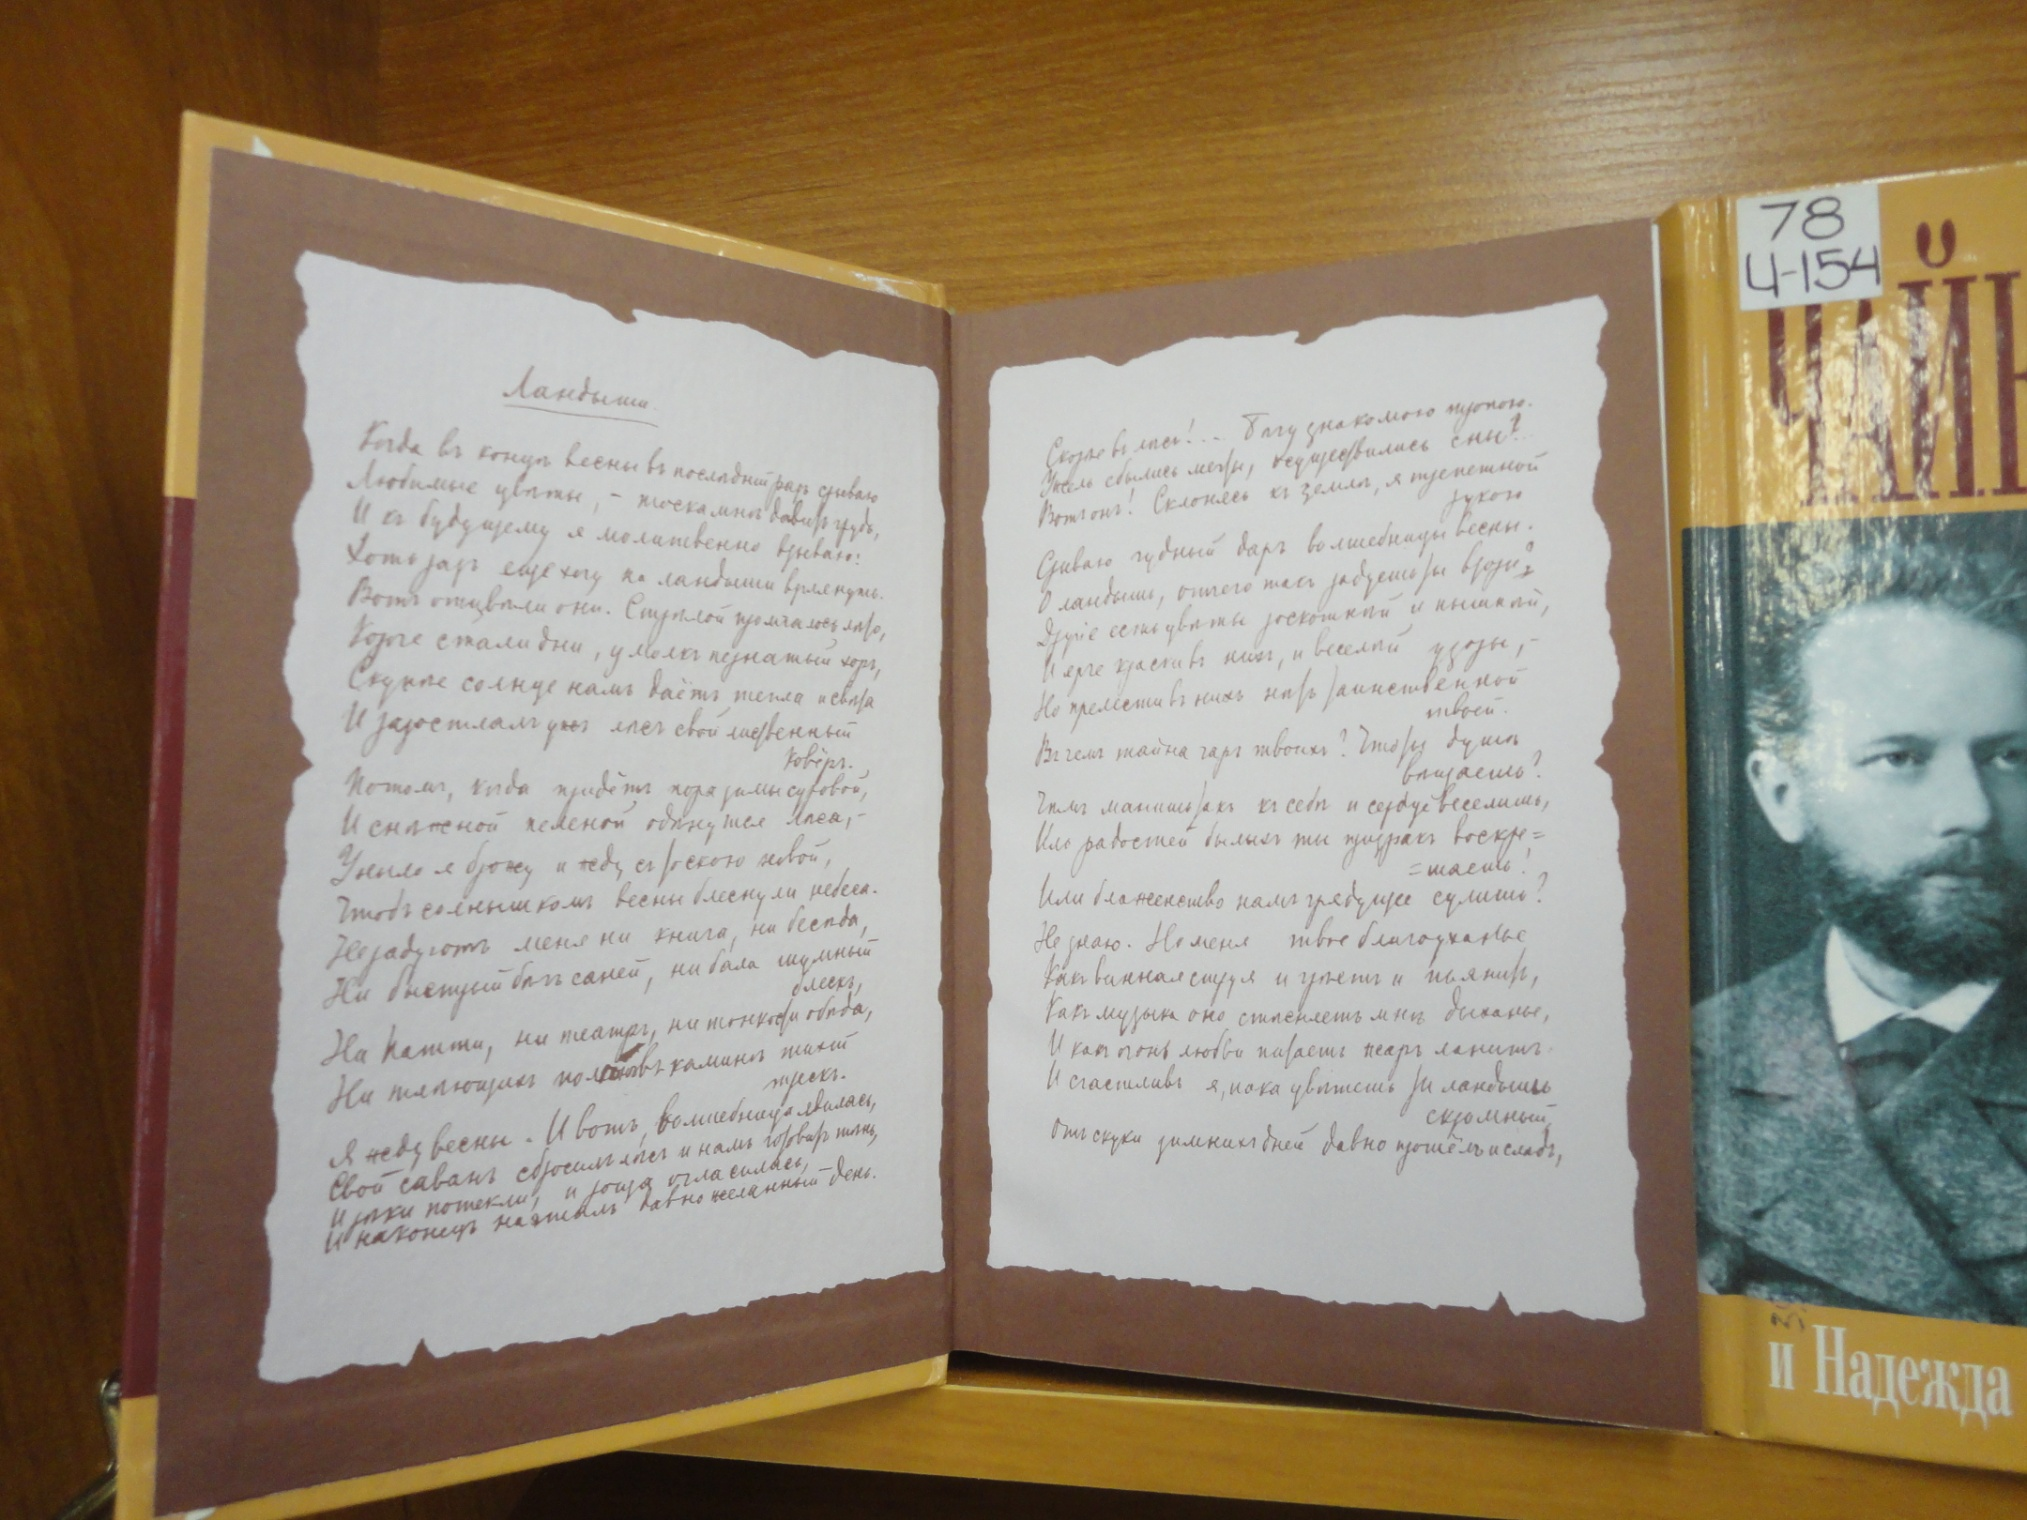 Ландыши.
Когда въ концѣ весны въ последній разъ срываю
Любимые цвѣты, – тоска мнѣ давитъ грудь,
И къ будущему я молитвенно взываю:
Хоть разъ еще хочу на ландыши взглянуть.
Вотъ отцвѣли они. Стрѣлой промчалось лѣто,
Короче стали дни, умолкъ пернатый хоръ,
Скупѣе солнце намъ даётъ тепла и свѣта
И разостлалъ ужъ лѣсъ свой лиственный
ковёръ.
Потомъ, когда придётъ пора зимы суровой,
И снѣжной пеленой одѣнутся лѣса, –
Уныло я брожу и жду съ тоскою новой,
Чтобъ солнышкомъ весны блеснули небеса.
Не радуютъ меня ни книга, ни бесѣда,
Ни быстрый бѣгъ саней, ни бала шумный
блескъ,
Ни Патти, ни театръ, ни тонкости обѣда,
Ни тлѣющихъ полѣньевъ въ каминѣ тихій
трескъ.
Я жду весны. И вотъ, волшебница явилась,
Свой саванъ сбросилъ лѣсъ и намъ готовитъ тѣнь,
И рѣки потекли, и роща огласилась,
И наконецъ насталъ давно желанный день.
Скорѣе въ лѣсъ!.. Бѣгу знакомою тропою.
Ужель сбылись мечты, осуществились сны?..
Вотъ онъ! Склонясь къ землѣ, я трепетной
рукою
Срываю чудный даръ волшебницы весны.
О ландышъ, отчего такъ радуешь ты взоры?
Другіе есть цвѣты роскошнѣй и пышнѣй,
И ярче краски въ нихъ, и веселѣй узоры, –
Но прелести въ нихъ нѣтъ таинственной
твоей.
Въ чемъ тайна чаръ твоихъ? Что ты душѣ
вѣщаешь?
Чѣмъ манишь такъ къ себѣ и сердце веселишь,
Иль радостей былыхъ ты призракъ воскре=
=шаешь!
Или блаженство намъ грядущее сулишь?
Не знаю. Но меня твое благоуханье,
Какъ винная струя и грѣетъ и пьянитъ,
Какъ музыка оно стѣсняетъ мнѣ дыханье,
И какъ огонь любви питаетъ жаръ ланитъ.
И счастливъ я, пока цвѣтешь ты ландышъ
скромный,
Отъ скуки зимнихъ дней давно прошёлъ и слѣдъ,
78
Ч-154
ЧАЙК
и Надежда